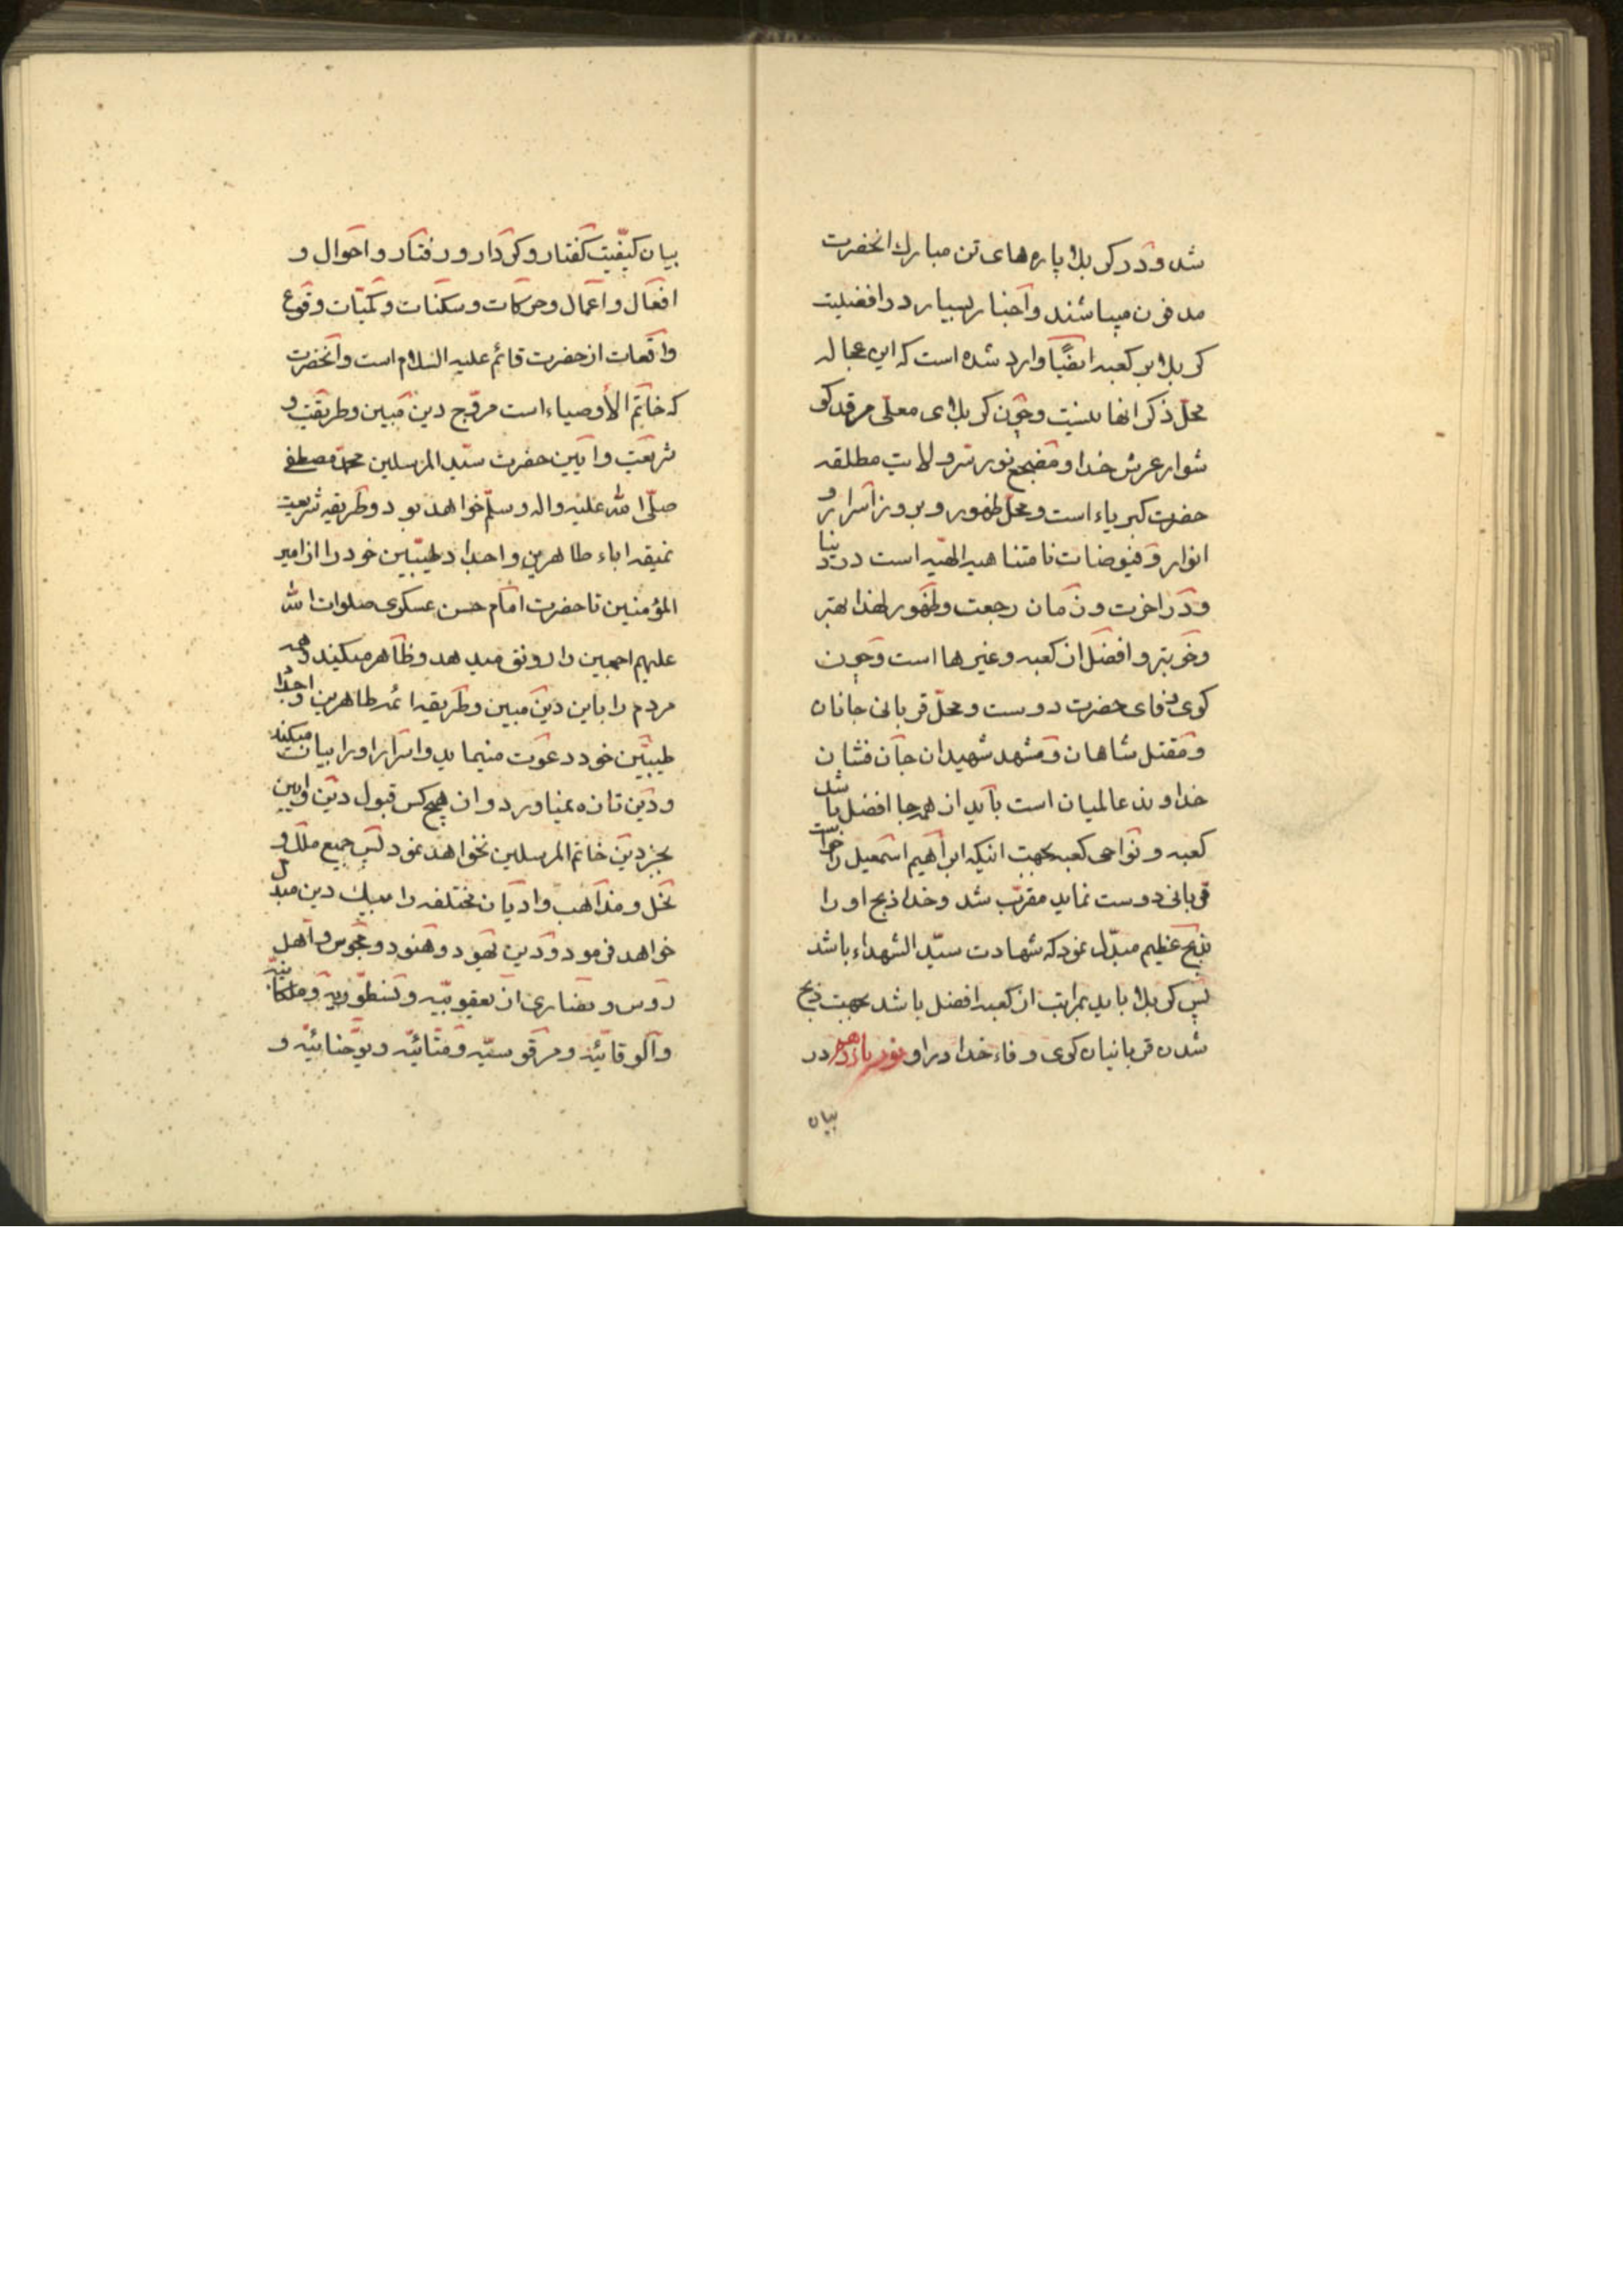 شد و در کربلا پاره‌های تن مبارک انحضرت
مدفون میباشند و اخبار بسیار در افضلیت
کربلا بر کعبه ایضًا وارد شده است که این عجاله
محلّ ذکر انها نیست و چون کربلای معلّی مرقد گو
شوار عرش خدا و مضجع نور سر ولایت مطلقه
حضرت کبریاء است و محلّ ظهور و بروز اسرار و
انوار و فیوضات نامتناهیه الهیّه است در دنیا
و در اخرت و زمان رجعت و ظهور لهذا بهتر
و خوبتر و افضل از کعبه و غیرها است و چون
کوی وفای حضرت دوست و محلّ قربانی جانان
و مقتل شاهان و مشهد شهیدان جان فشان
خداوند عالمیان است باید از همه جا افضل باشد
کعبه و نواحی کعبه بجهت اینکه ابراهیم اسمعیل را خواست
قربانی دوست نماید مقرّب شد و خدا ذبح او را
بذبح عظیم مبدّل نمود که شهادت سیّد الشهداء باشد
پس کربلا باید بمراتب از کعبه افضل باشد بجهت ذبح
شدن قربانیان کوی وفاء خدا در او نور یازدهم در
بیان
بیان کیفیّت گفتار و کردار و رفتار و احوال و
افعال و اعمال و حرکات و سکنات و کمیّات وقوع
واقعات از حضرت قائم علیه السلام است و انحضرت
که خاتم الأوصیاء است مروّج دین مبین و طریقت و
شریعت و ایین حضرت سیّد المرسلین محمّد مصطفی
صلّی الله علیه واله وسلّم خواهد بود و طریقه شریعت
نمیقه اباء طاهرین و اجداد طیّبین خود را از امیر
المؤمنین تا حضرت امام حسن عسکری صلوات الله
علیهم اجمعین را رونق میدهد و ظاهر میکند و همه
مردم را باین دین مبین و طریقه ائمه طاهرین و اجداد
طیبّین خود دعوت مینماید و اسرار او را بیان میکند
و دین تازه نمیاورد و از هیچ کس قبول دین و ایین
بجز دین خاتم المرسلین نخواهد نمود پس جمیع ملل و
نحل و مذاهب و ادیان مختلفه را بیک دین مبدل
خواهد فرمود و دین یهود و هنود و مجوس و اهل
روس و نصاری از یعقوبیّه و نسطوریه و ملکائیّه
و مرقوسیّه و متّائیّه و یوحّنائیّه و